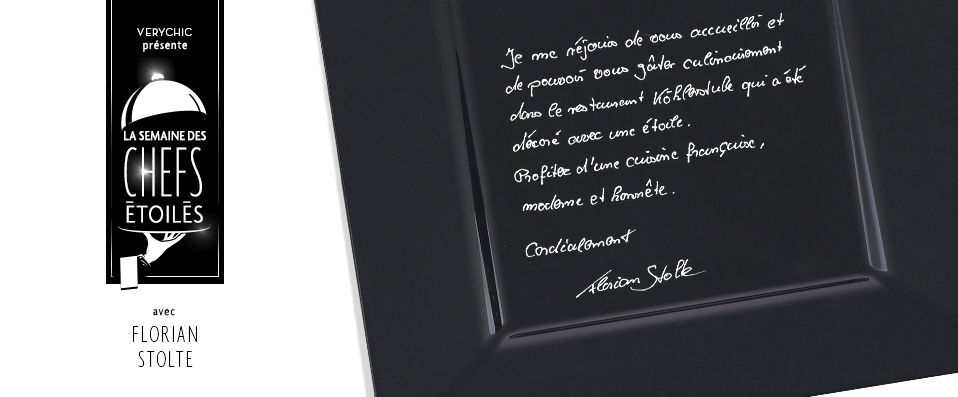 VERYCHIC
présente
LA SEMAINE DES
CHEFS
ÉTOILÉS
avec
FLORIAN
STOLTE
Je me réjouis de vous accueillir et
de pouvoir vous gâter culinairement
dans le restaurant Köhlerstube qui a été
décoré avec une étoile.
Profitez d'une cuisine française,
moderne et honnête.
Cordialement
Florian Stolte